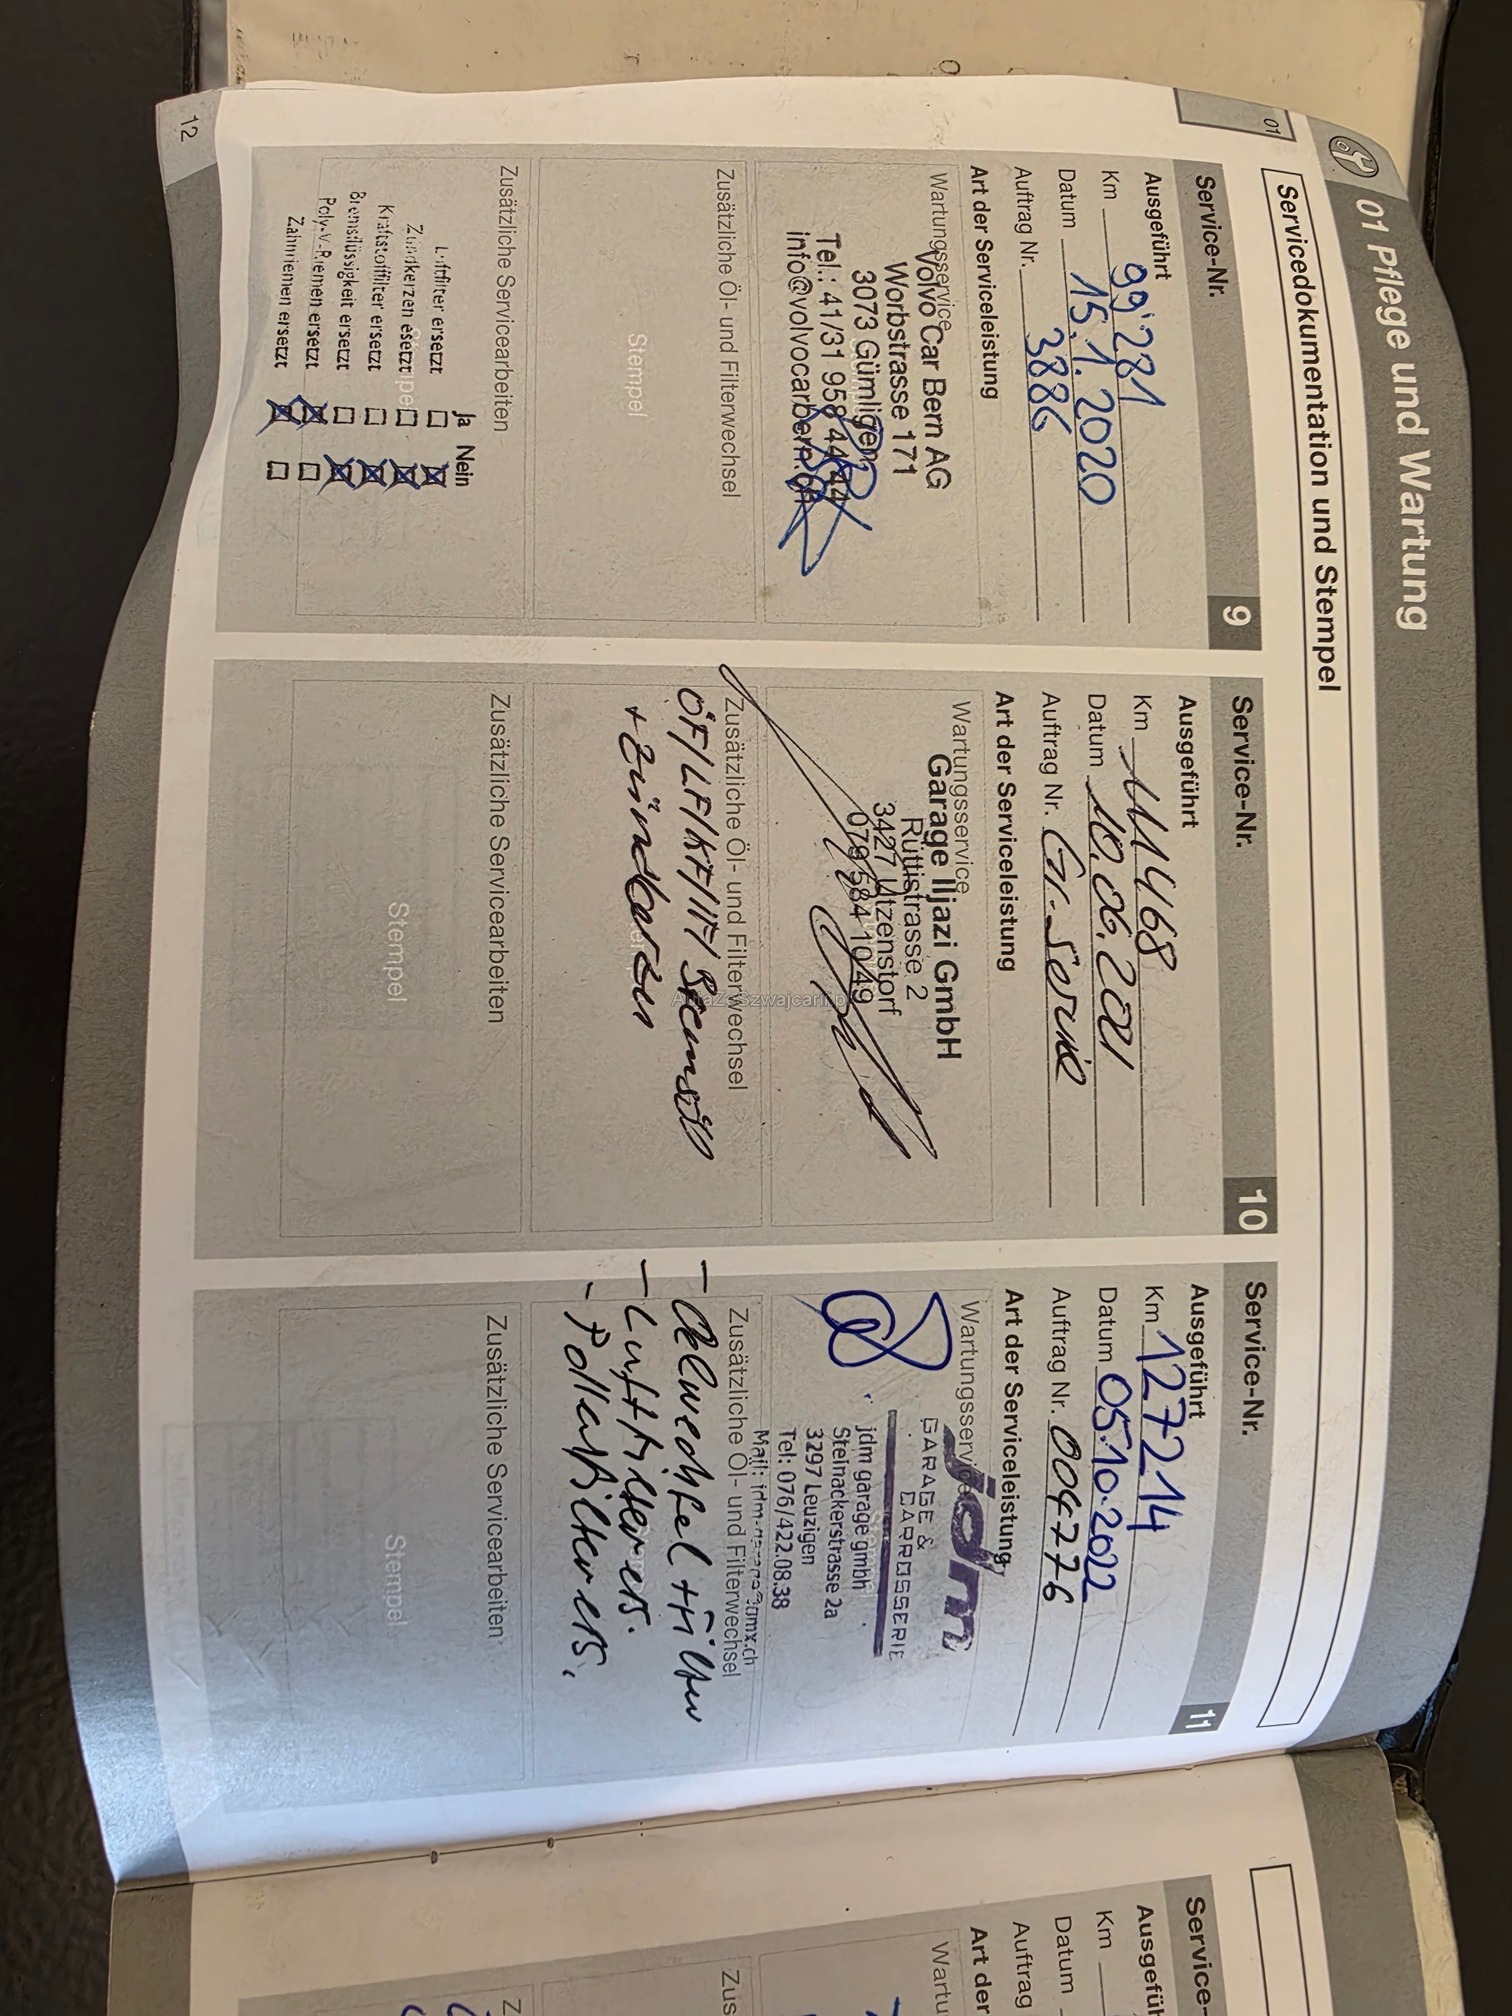 01 Pflege und Wartung
01
Servicedokumentation und Stempel
Service-Nr. 9
Ausgeführt
Km 99'281
Datum 15.1.2020
Auftrag Nr. 3886
Art der Serviceleistung
Wartungsservice
Volvo Car Bern AG
Worbstrasse 171
3073 Gümligen
Tel.: 41/31 958 44 44
info@volvocarbern.ch
Zusätzliche Öl- und Filterwechsel
Stempel
Zusätzliche Servicearbeiten
Ja Nein
Luftfilter ersetzt
Zündkerzen esetzt
Kraftstoffilter ersetzt
Bremsflüssigkeit ersetzt
Poly-V-Riemen ersetzt
Zahnriemen ersetzt
Service-Nr. 10
Ausgeführt
Km 111468
Datum 10.06.2021
Auftrag Nr. Gr. Service
Art der Serviceleistung
Wartungsservice
Garage Iljazi GmbH
Rüttistrasse 2
3427 Utzenstorf
079 584 10 49
Zusätzliche Öl- und Filterwechsel
ÖF/LF/KF/IF/ Bremsöl
+ Zündkerzen
Zusätzliche Servicearbeiten
Stempel
Service-Nr. 11
Ausgeführt
Km 127214
Datum 05.10.2022
Auftrag Nr. 004776
Art der Serviceleistung
Wartungsservice
jdm
GARAGE &
CARROSSERIE
jdm garage gmbh
Steinackerstrasse 2a
3297 Leuzigen
Tel: 076/422.08.38
Mail: @gmx.ch
Zusätzliche Öl- und Filterwechsel
- Oelwechsel + Filter
- Luftfilter ers.
- Pollenfilter ers.
Zusätzliche Servicearbeiten
Stempel
12
Service-
Ausgefüh
Km
Datum
Auftrag
Art der
Wartu
Zus
Z